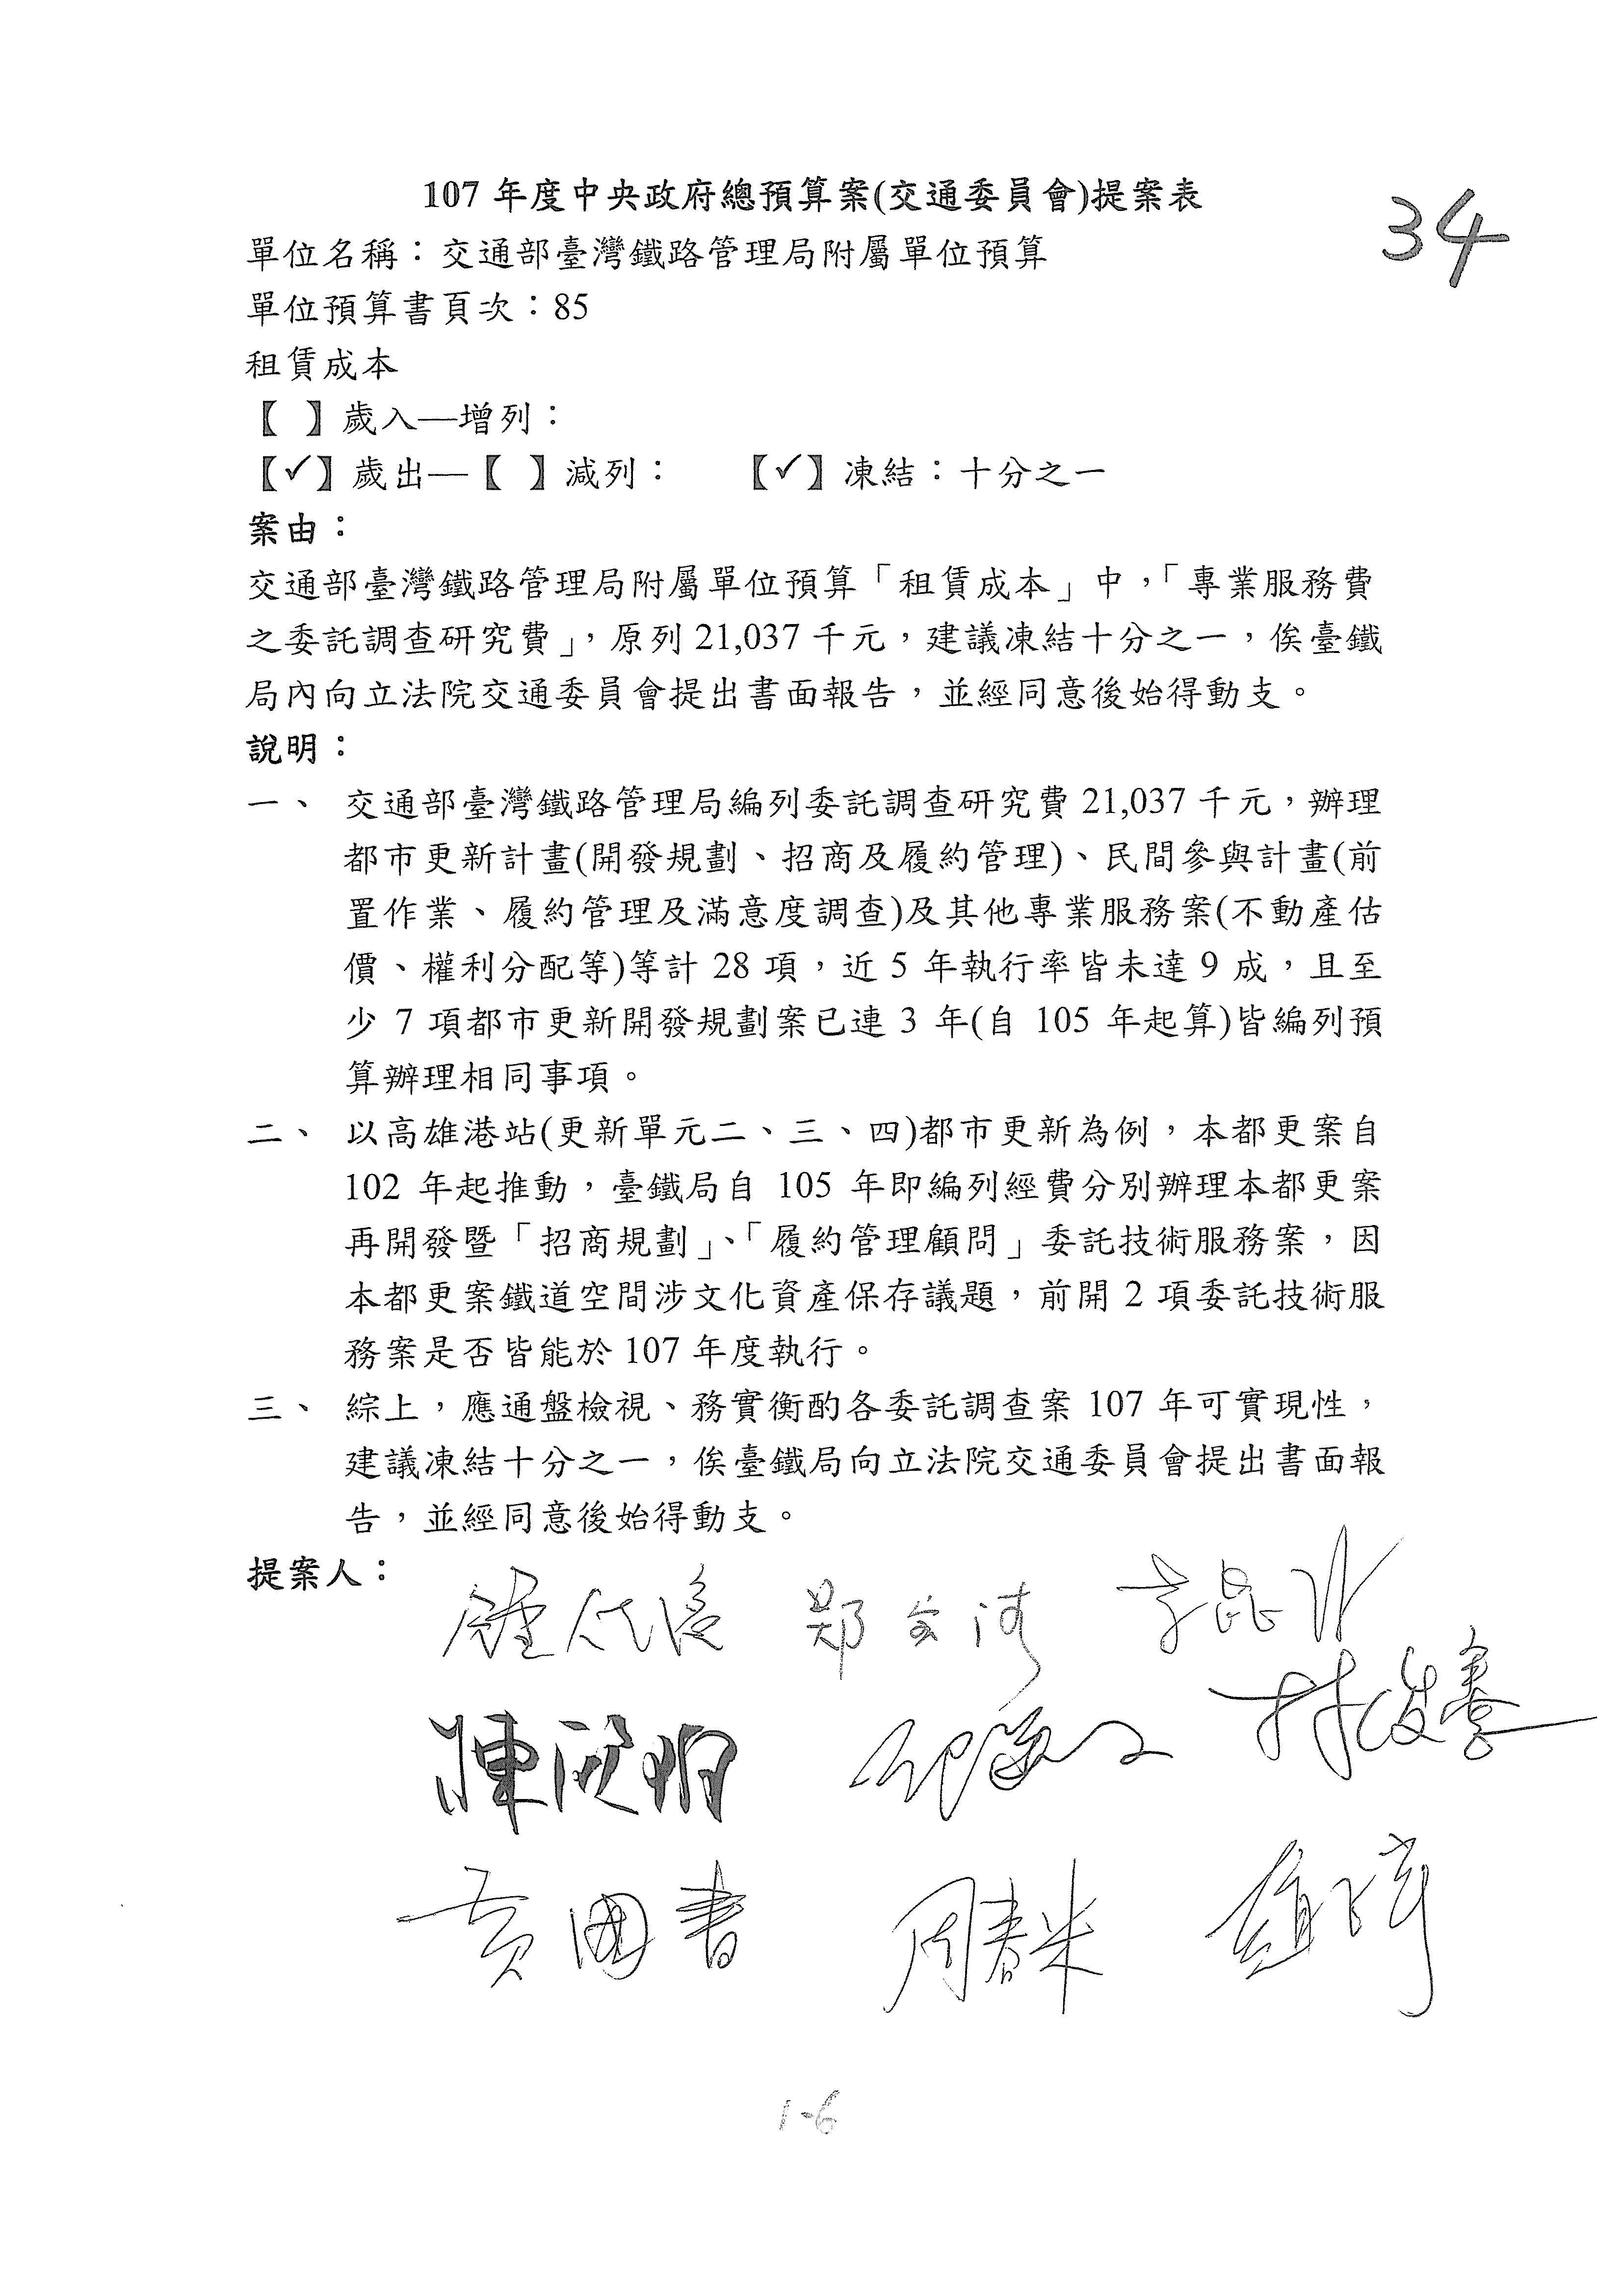 107 年度中央政府總預算案(交通委員會)提案表
34
單位名稱：交通部臺灣鐵路管理局附屬單位預算
單位預算書頁次：85
租賃成本
【 】歲入—增列：
【✓】歲出—【 】減列： 【✓】凍結：十分之一
案由：
交通部臺灣鐵路管理局附屬單位預算「租賃成本」中，「專業服務費
之委託調查研究費」，原列 21,037 千元，建議凍結十分之一，俟臺鐵
局內向立法院交通委員會提出書面報告，並經同意後始得動支。
說明：
一、 交通部臺灣鐵路管理局編列委託調查研究費 21,037 千元，辦理
都市更新計畫(開發規劃、招商及履約管理)、民間參與計畫(前
置作業、履約管理及滿意度調查)及其他專業服務案(不動產估
價、權利分配等)等計 28 項，近 5 年執行率皆未達 9 成，且至
少 7 項都市更新開發規劃案已連 3 年(自 105 年起算)皆編列預
算辦理相同事項。
二、 以高雄港站(更新單元二、三、四)都市更新為例，本都更案自
102 年起推動，臺鐵局自 105 年即編列經費分別辦理本都更案
再開發暨「招商規劃」、「履約管理顧問」委託技術服務案，因
本都更案鐵道空間涉文化資產保存議題，前開 2 項委託技術服
務案是否皆能於 107 年度執行。
三、 綜上，應通盤檢視、務實衡酌各委託調查案 107 年可實現性，
建議凍結十分之一，俟臺鐵局向立法院交通委員會提出書面報
告，並經同意後始得動支。
提案人：
鄭
林俊憲
黃國書 周春米
1-6